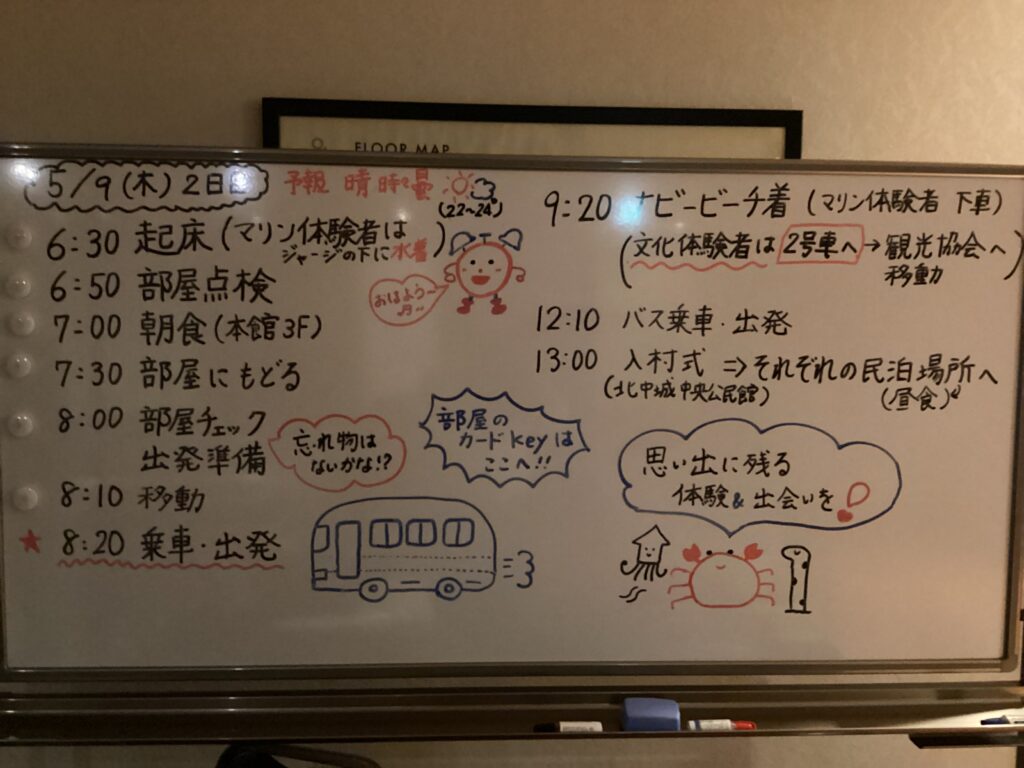 FLOOR MAP
5/9(木) 2日目
予報 晴時々曇
(22~24°)
6:30 起床(マリン体験者は
ジャージの下に水着)
おはよう~
6:50 部屋点検
7:00 朝食(本館3F)
7:30 部屋にもどる
8:00 部屋チェック
出発準備
忘れ物は
ないかな!?
部屋の
カードkeyは
ここへ!!
8:10 移動
★ 8:20 乗車・出発
9:20 ナビービーチ着 (マリン体験者 下車)
(文化体験者は2号車へ→観光協会へ
移動)
12:10 バス乗車・出発
13:00 入村式 ⇒それぞれの民泊場所へ
(北中城中央公民館)
(昼食)
思い出に残る
体験&出会いを!